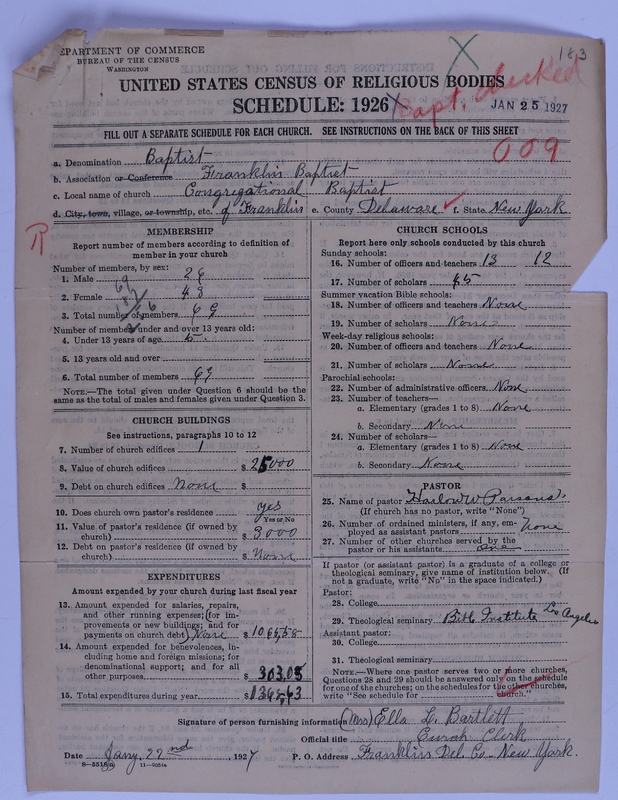 DEPARTMENT OF COMMERCE
BUREAU OF THE CENSUS
WASHINGTON
183
UNITED STATES CENSUS OF RELIGIOUS BODIES
SCHEDULE: 1926
Capt. checked
JAN 25 1927
FILL OUT A SEPARATE SCHEDULE FOR EACH CHURCH. SEE INSTRUCTIONS ON THE BACK OF THIS SHEET
009
a. Denomination Baptist
b. Association or Conference Franklin Baptist
c. Local name of church Congregational Baptist
d. City, town, village, or township, etc. of Franklin e. County Delaware f. State New York
MEMBERSHIP
Report number of members according to definition of
member in your church
Number of members, by sex:
1. Male 26
2. Female 43
3. Total number of members 69
Number of members under and over 13 years old:
4. Under 13 years of age
5. 13 years old and over
6. Total number of members 69
NOTE.—The total given under Question 6 should be the
same as the total of males and females given under Question 3.
CHURCH BUILDINGS
See instructions, paragraphs 10 to 12
7. Number of church edifices 1
8. Value of church edifices $ 25000
9. Debt on church edifices None $
10. Does church own pastor's residence yes
Yes or No
11. Value of pastor's residence (if owned by
church) $ 3000
12. Debt on pastor's residence (if owned by
church) $ None
EXPENDITURES
Amount expended by your church during last fiscal year
13. Amount expended for salaries, repairs,
and other running expenses; (for im-
provements or new buildings; and for
payments on church debt) None $
14. Amount expended for benevolences, in-
cluding home and foreign missions; for
denominational support; and for all
other purposes $ 303.05
15. Total expenditures during year $
CHURCH SCHOOLS
Report here only schools conducted by this church
Sunday schools:
16. Number of officers and teachers 13 12
17. Number of scholars
Summer vacation Bible schools:
18. Number of officers and teachers None
19. Number of scholars None
Week-day religious schools:
20. Number of officers and teachers None
21. Number of scholars None
Parochial schools:
22. Number of administrative officers None
23. Number of teachers—
a. Elementary (grades 1 to 8) None
b. Secondary None
24. Number of scholars—
a. Elementary (grades 1 to 8) None
b. Secondary None
PASTOR
25. Name of pastor Harlow W Parsons
(If church has no pastor, write "None")
26. Number of ordained ministers, if any, em-
ployed as assistant pastors None
27. Number of other churches served by the
pastor or his assistants one
If pastor (or assistant pastor) is a graduate of a college or
theological seminary, give name of institution below. (If
not a graduate, write "No" in the space indicated.)
Pastor:
28. College
29. Theological seminary Bible Institute Los Angeles
Assistant pastor:
30. College
31. Theological seminary
NOTE.—Where one pastor serves two or more churches,
Questions 28 and 29 should be answered only on the schedule
for one of the churches; on the schedules for the other churches,
write "See schedule for church."
Signature of person furnishing information (Mrs) Ella L. Bartlett
Official title Church Clerk
Date Jany. 22nd, 1927 P. O. Address Franklin Del. Co. New York.
8—5518(a) 11—9051a